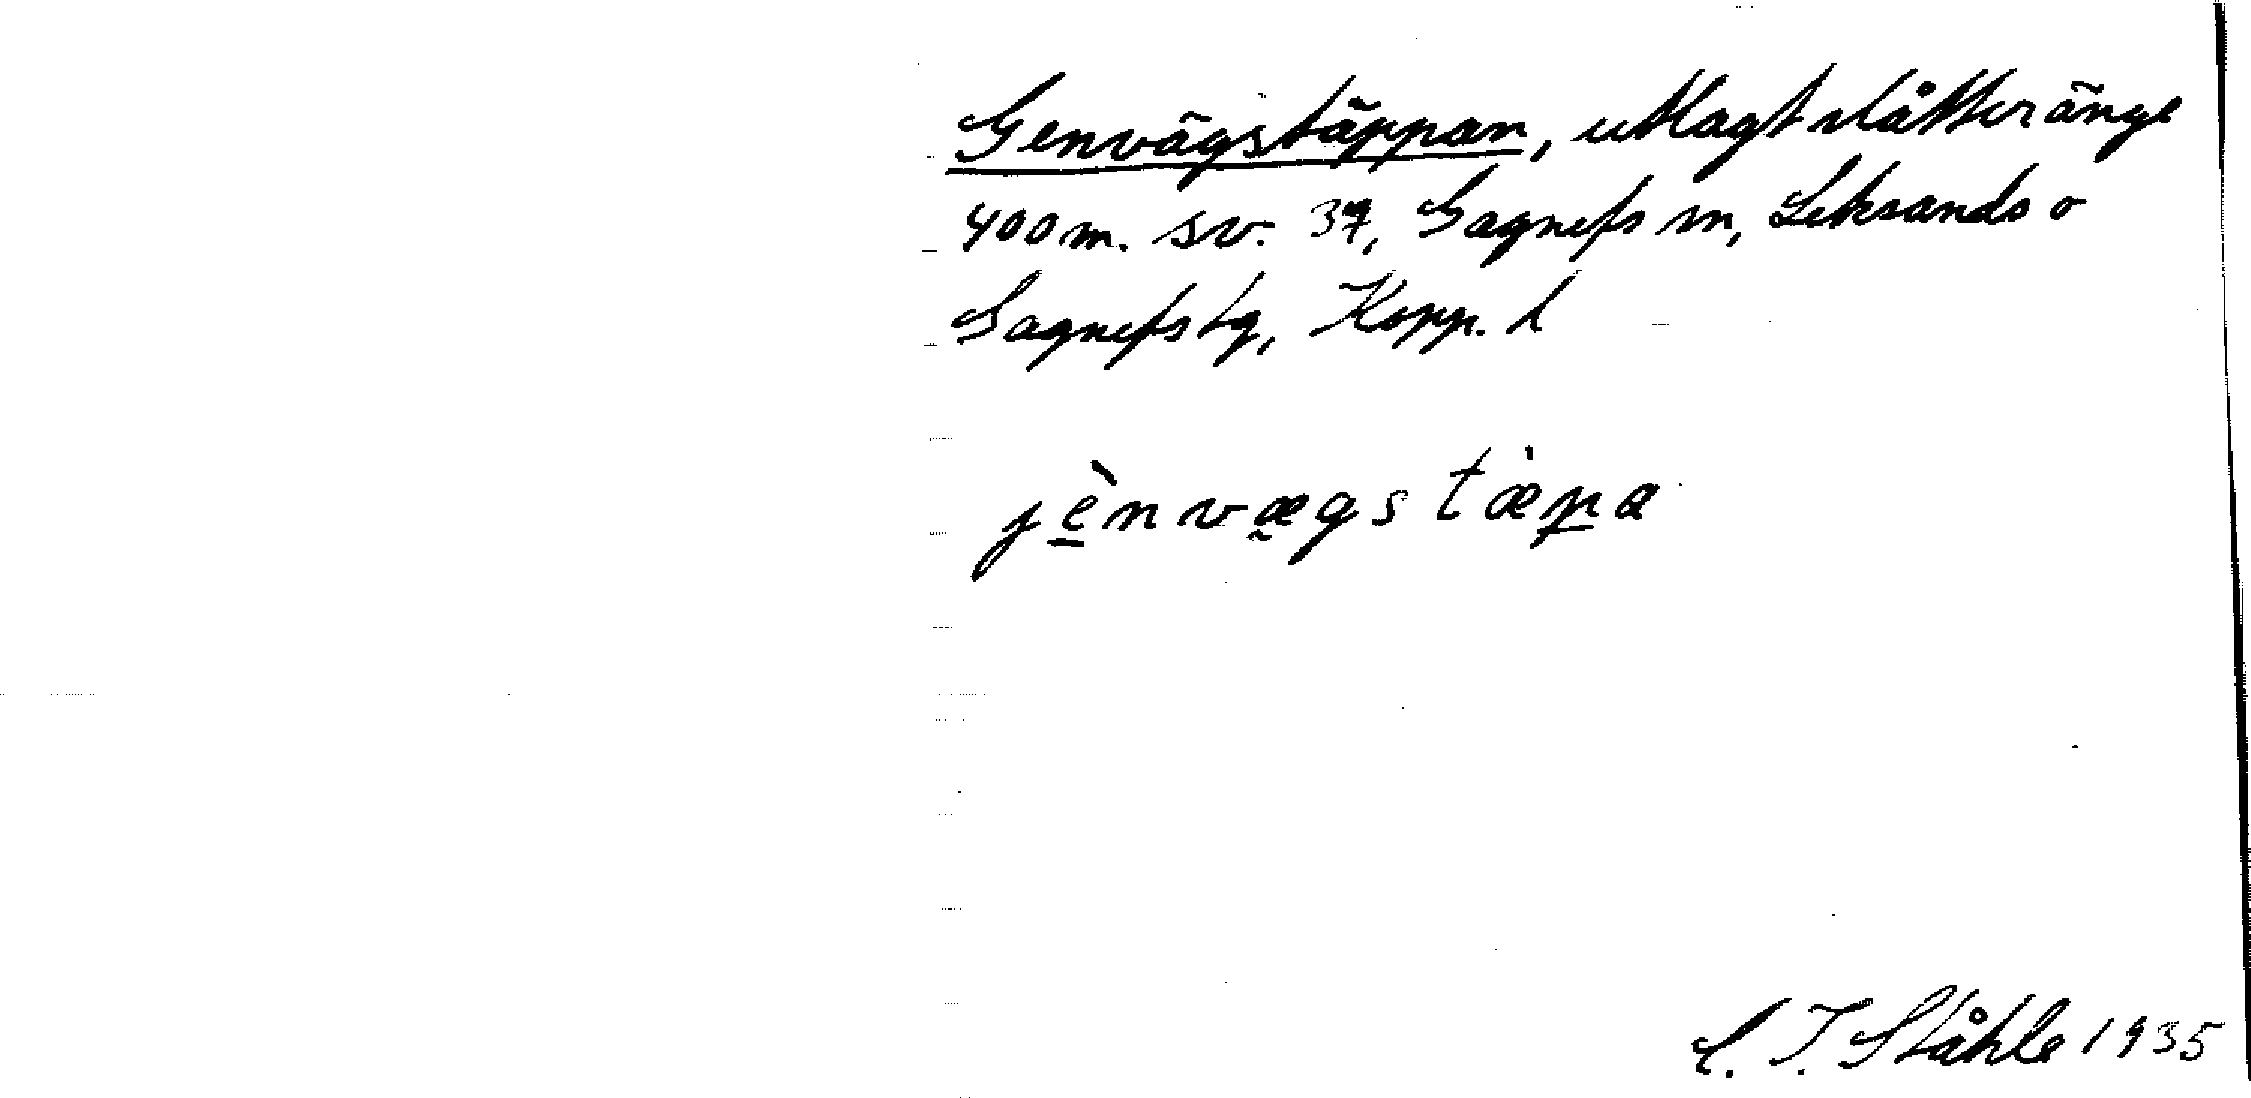 Genvägstäppan, utlagt slåtteränge
400 m. sv. 37, Gagnefs sn, Leksands o
Gagnefs tg, Kopp. l
jènvægstæ̀pa
C. I. Ståhle 1935